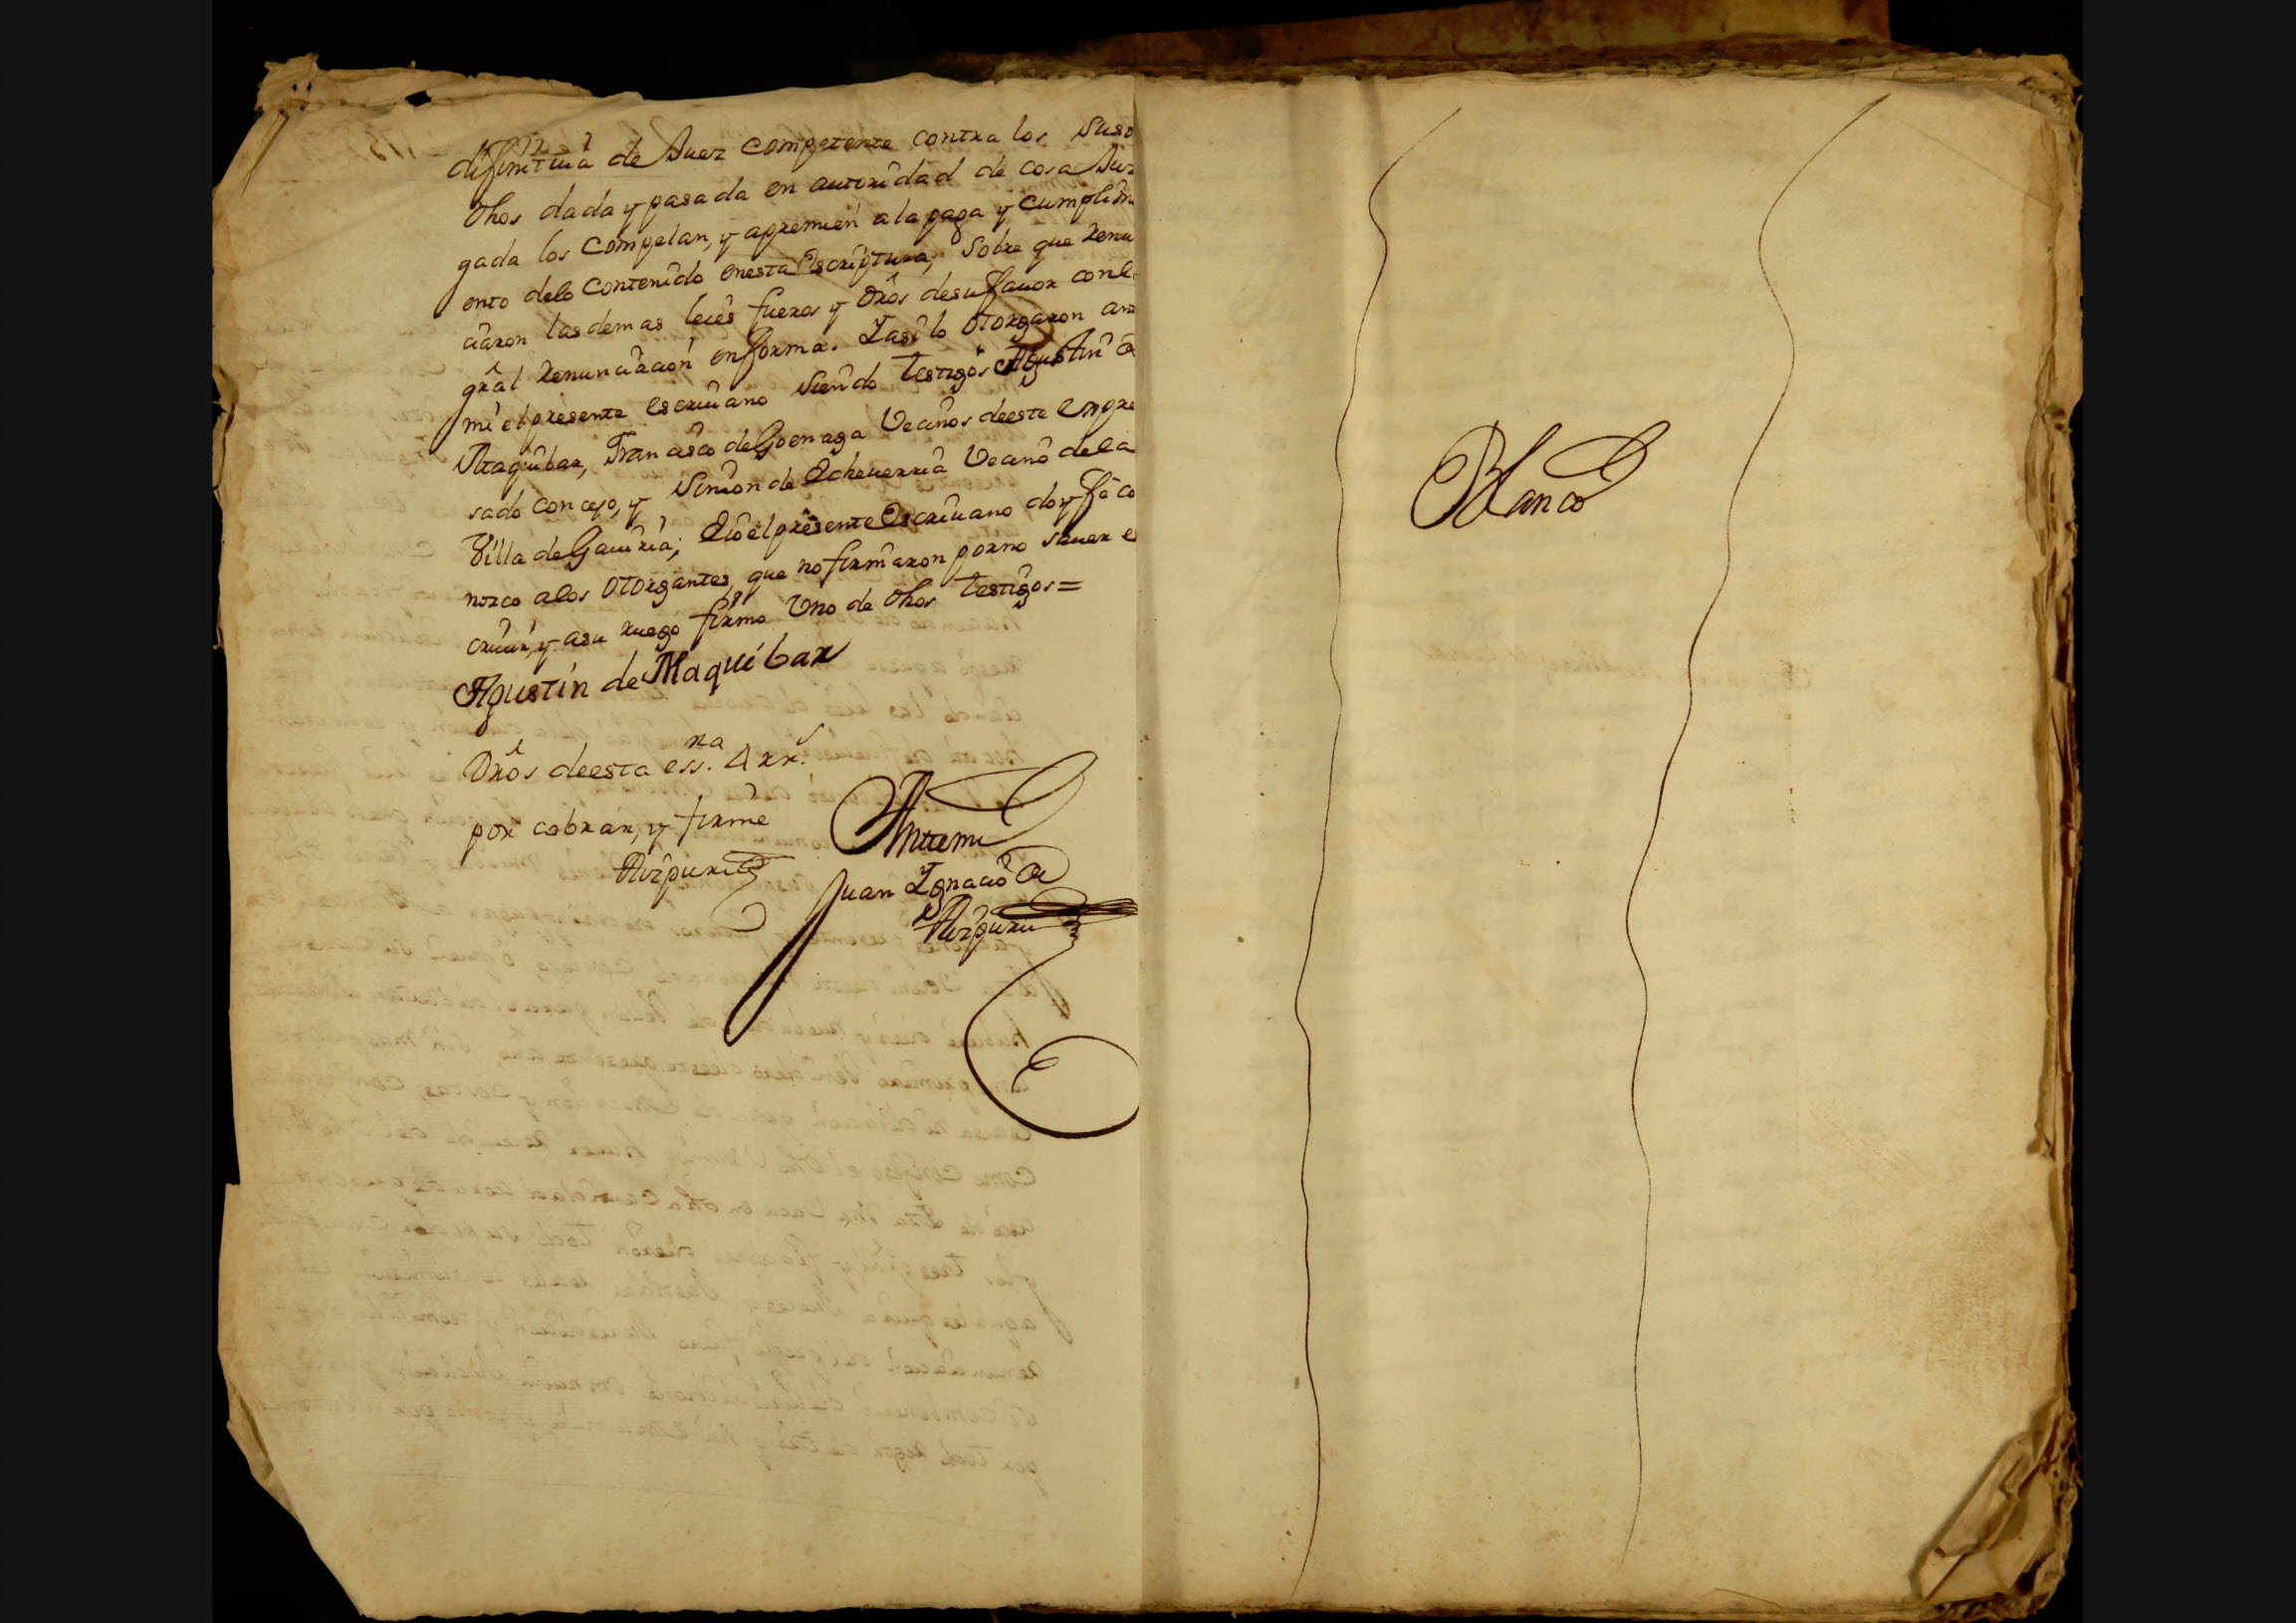 difinitiua de Juez competente contra los Suso
dhos dada y pasada en autoridad de cosa Juz
gada los compelan, y apremien a la paga y cumplimi
ento delo contenido enesta escriptura, sobre que Renu
ciaron las demas leies fueros y dros desu fauor conla
gral Renunciacion enforma. Y asi lo otorgaron ante
mi el presente escriuano siendo testigos Agustin de
Maquibar, Francisco de Goenaga Vecinos deeste expre
sado concejo, y Simon de Echeuerria Vecino dela
Villa de Gauiria; Eio el presente escriuano doy fe co
nozco alos otorgantes, que no firmaron por no sauer es
criuir, y asu ruego firmo Uno de dhos testigos =
Agustin de Maquibar
Dros deesta essna. 4 rrs.
por cobrar, y firme
Aizpuru
Antemi
Juan Ygnacio de
Aizpuru
Blanco